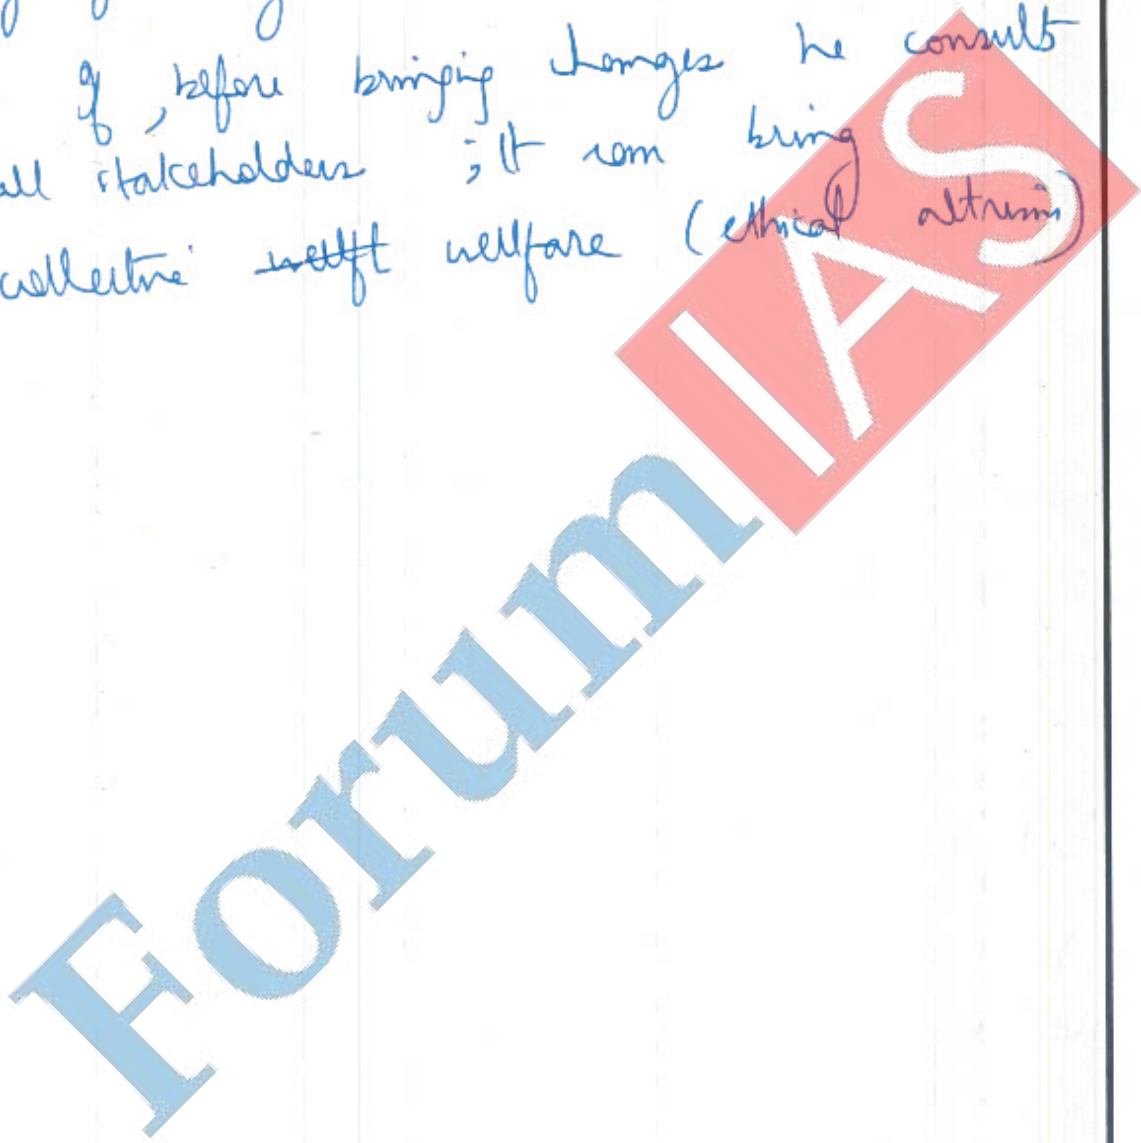 If, before bringing changes he consult
all stakeholders ; It can bring
collective wellfare (ethical altrusim)
ForumIAS